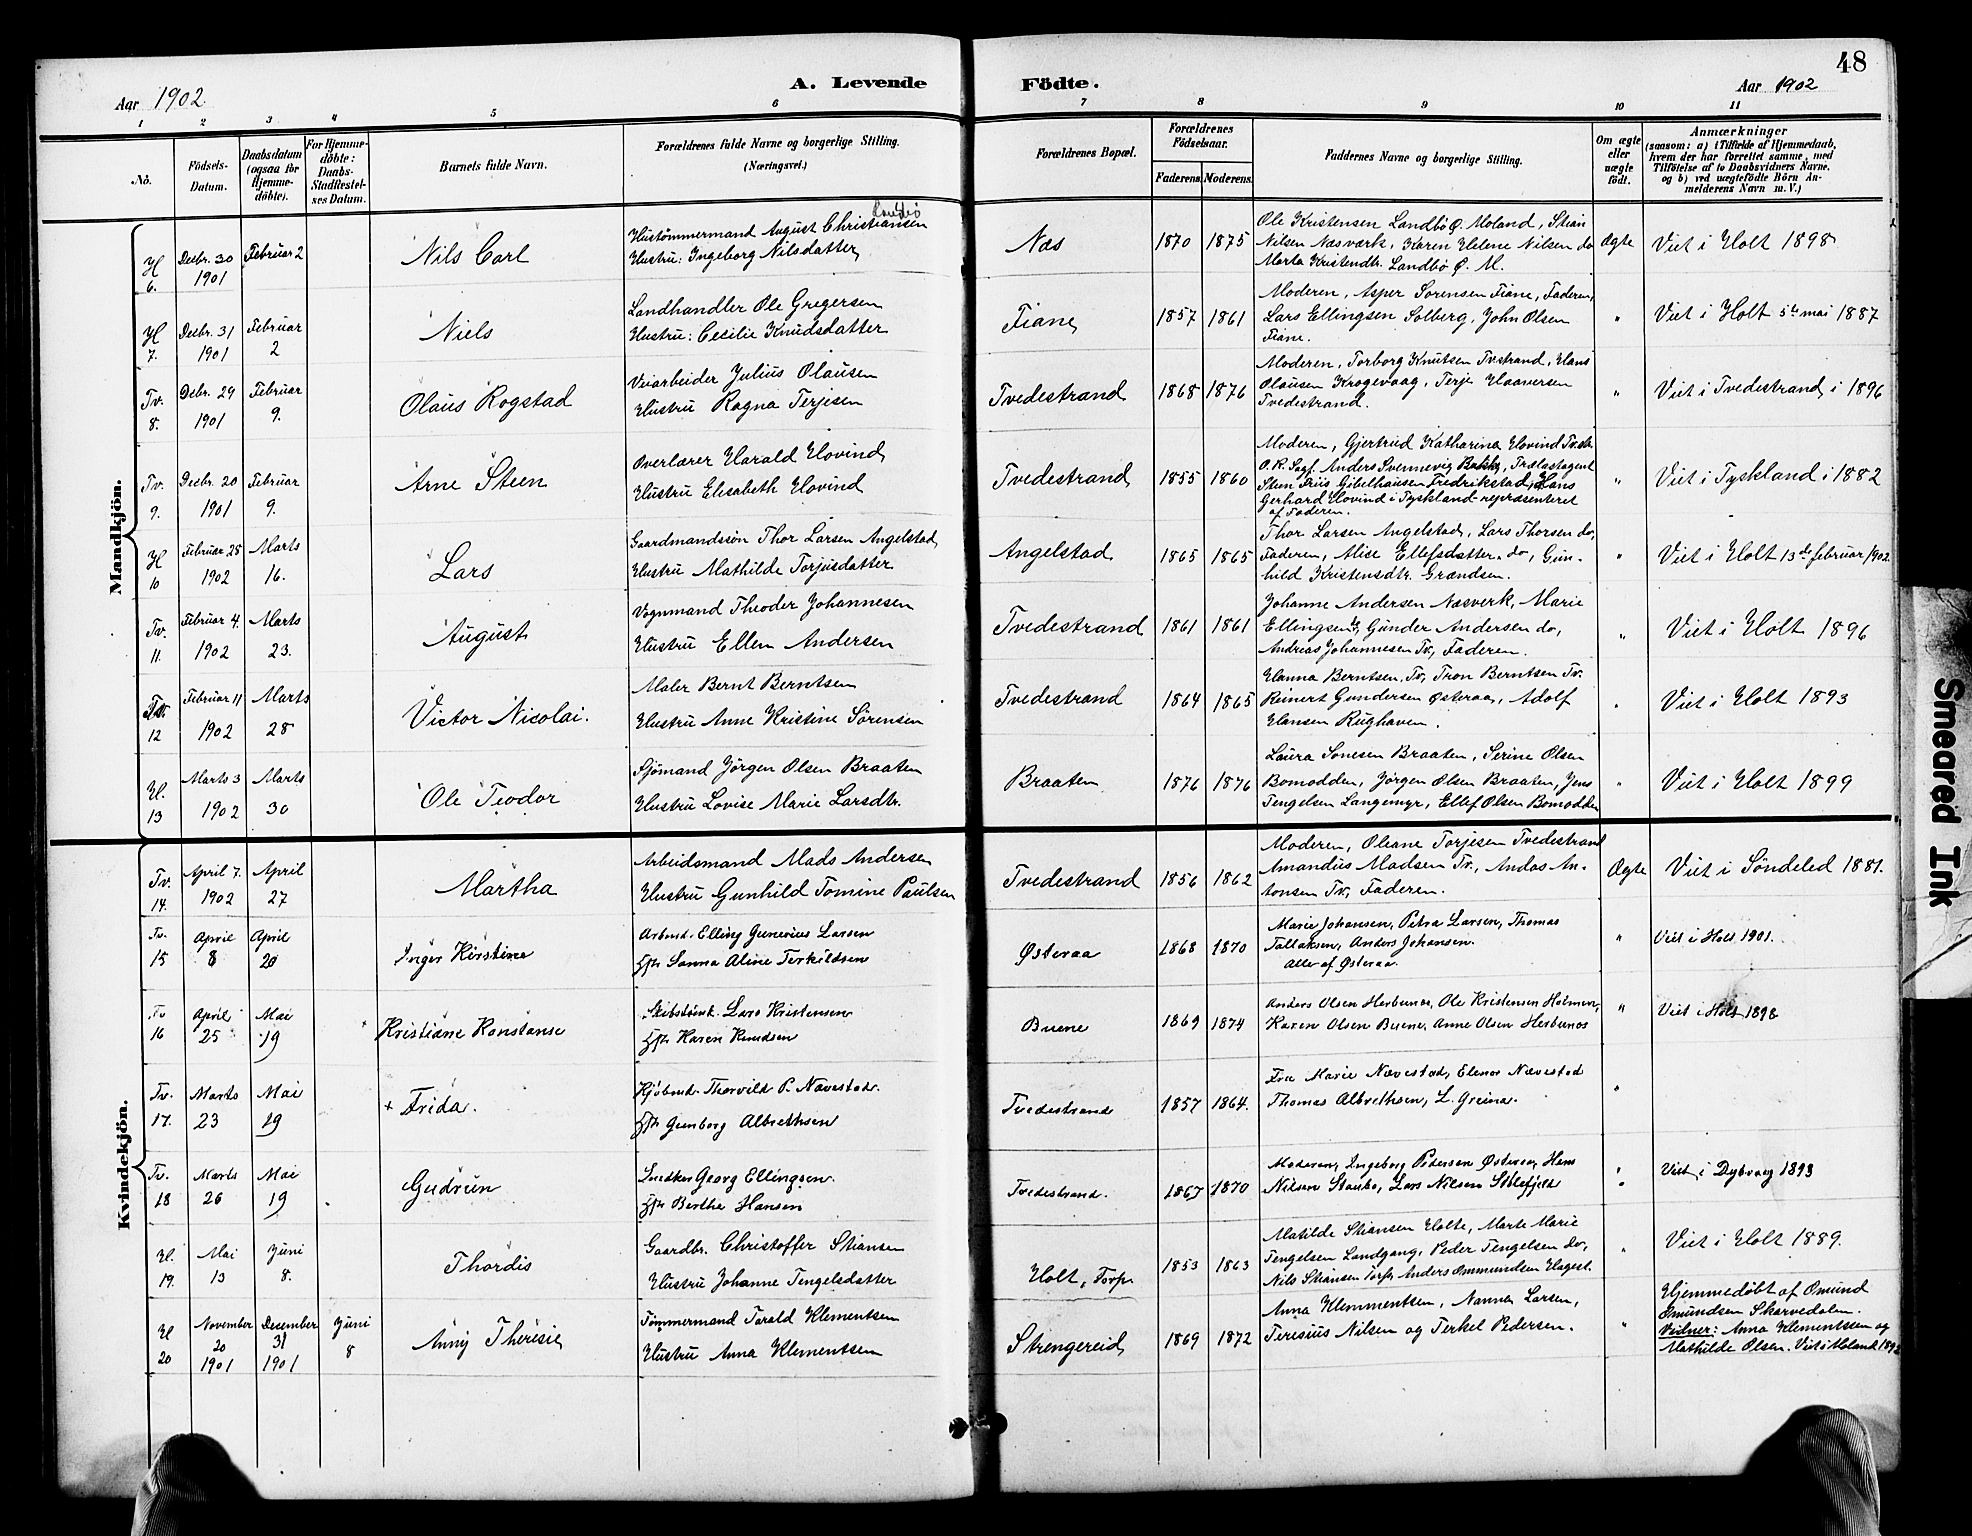 48
Aar 1902
A. Levende Födte.
Aar 1902
1 2 3 4 5 6 7 8 9 10 11
No.
Födsels-
Datum.
Daabsdatum
(ogsaa for
Hjemme-
döbte).
For Hjemme-
döbte:
Daabs-
Stadfæstel-
ses Datum.
Barnets fulde Navn.
Forældrenes fulde Navne og borgerlige Stilling.
(Næringsvei.)
Forældrenes Bopæl.
Forældrenes
Födselsaar.
Faderens. Moderens.
Faddernes Navne og borgerlige Stilling.
Om ægte
eller
uægte
födt.
Anmærkninger
(saasom: a) i Tilfælde af Hjemmedaab,
hvem der har forrettet samme, med
Tilföielse af to Daabsvidners Navne,
og b) ved uægtefödte Börn An-
melderens Navn m. V.)
Mandkjön.
H
6.
Decbr. 30
1901
Februar 2
Nils Carl
Landbö
Hustømmermand August Christiansen
Hustru: Ingeborg Nilsdatter
Næs
1870 1875
Ole Kristensen Landbö Ø. Moland, Stian
Nilsen Næsværk, Karen Helene Nilsen do
Marta Kristendtr. Landbö Ø. M.
Ægte
Viet i Holt 1898
H
7.
Decbr. 31
1901
Februar
2
Niels
Landhandler Ole Gregersen
Hustru: Cecilie Knudsdatter
Fiane
1857 1861
Moderen, Asper Sörensen Fiane, Faderen,
Lars Ellingsen Solberg, John Olsen
Fiane.
"
Viet i Holt 5te mai 1887
Tv.
8.
Debr. 29
1901
Februar
9.
Olaus Rogstad
Veiarbeider Julius Olausen
Hustru Ragna Terjesen
Tvedestrand
1868 1876
Moderen, Torborg Knutsen Tvstrand, Hans
Olausen Krogevaag, Terje Haaversen
Tvedestrand.
"
Viet i Tvedestrand i 1896
Tv.
9.
Decbr. 20
1901
Februar
9.
Arne Steen
Overlærer Harald Hovind
Hustru Elisabeth Hovind
Tvedestrand
1855 1860
Moderen, Gjertrud Katharina Hovind Tvedst.
O.R. Sagf. Anders Svennevig Bakke, Trælastagent
Sten Friis Gibelhausen Fredrikstad, Hans
Gerhard Hovind i Tyskland repræsenteret
af Faderen.
"
Viet i Tyskland i 1882
H
10
Februar 25
1902
Marts
16.
Lars
Gaardmandssön Thor Larsen Angelstad
Hustru Mathilde Torjusdatter
Angelstad
1865 1865
Thor Larsen Angelstad, Lars Thorsen do,
Faderen, Alice Ellefsdatter do, Gun-
hild Kristensdtr. Grændsen.
"
Viet i Holt 13de februar 1902
Tv.
11.
Februar 4.
1902
Marts
23.
August
Vognmand Theodor Johannesen
Hustru Ellen Andersen
Tvedestrand
1861 1861
Johanne Andersen Næsverk, Marie
Ellingsen, Gunder Andersen do,
Andreas Johannesen Tv, Faderen.
"
Viet i Holt 1896
Tv.
12
Februar 11
1902
Marts
28
Victor Nicolai.
Maler Bernt Berntsen
Hustru Anne Kristine Sörensen
Tvedestrand
1864 1865
Hanna Berntsen, Tv, Tron Berntsen Tv.
Reinert Gundersen Østeraa, Adolf
Hansen Rughaven.
"
Viet i Holt 1893
H.
13
Marts 3
1902
Marts
30
Ole Teodor
Sjömand Jörgen Olsen Braaten
Hustru Lovise Marie Larsdtr.
Braaten
1876 1876
Laura Sonesen Braaten, Serine Olsen
Bomodden, Jörgen Olsen Braaten, Jens
Tengelsen Langemyr, Ellef Olsen Bomodden
"
Viet i Holt 1899
Kvindekjön.
Tv.
14.
April 7.
1902
April
27
Martha
Arbeidsmand Mads Andersen
Hustru Gunhild Tomine Paulsen
Tvedestrand
1856 1862
Moderen, Oleane Torjesen Tvedestrand
Amandus Madsen Tv., Andas An-
tonsen Tv, Faderen.
Ægte
Viet i Söndeled 1881.
Tv.
15
April
8
April
20
Inger Kirstine
Arbmd. Elling Gunerius Larsen
Hstr Sanna Aline Terkildsen
Østeraa
1868 1870
Marie Johansen, Petra Larsen, Thomas
Tallaksen, Anders Johansen.
Alle af Østeraa.
"
Viet i Holt 1901.
Tv
16
April
25
Mai
19
Kristiane Konstanse
Skibstömr. Lars Kristensen
Hstr Karen Knudsen
Buene
1869 1874
Anders Olsen Herbunos, Ole Kristensen Holmen,
Karen Olsen Buene, Anne Olsen Herbunos
"
Viet i Holt 1898
Tv.
17.
Marts
23
Mai
19
+ Frida.
Kjöbmd. Thorvild P. Nævestad.
Hstr Gunborg Albrethsen
Tvedestrand
1857 1864.
Fru Marie Nævestad, Elenor Nævestad
Thomas Albrethsen, L. Greina.
"
Tv.
18
Marts
26
Mai
19
Gudrun
Snedker Georg Ellingsen.
Hstr Berthe Hansen
Tvedestrand.
1867 1870
Moderen, Ingeborg Pedersen Østeraa, Hans
Nilsen Staubo, Lars Nilsen Stölefjeld
"
Viet i Dybvaag 1893
H.
19.
Mai
13
Juni
8.
Thordis
Gaardbr. Christoffer Stiansen
Hustru Johanne Tengelsdatter
Holt, Torp
1853 1863
Matilde Stiansen Holte, Marte Marie
Tengelsen Landgang, Peder Tengelsen do,
Nils Stiansen Torp, Anders Ommundsen Hagest.
"
Viet i Holt 1889.
H
20
November
20
1901
December
31
1901
Juni
8
Anny Theresie
Tömmermand Tarald Klementsen
Hustru Anna Klementsen
Strengereid
1869 1872
Anna Klemmentsen, Nanna Larsen,
Teresius Nilsen og Terkel Pedersen.
"
Hjemmedøbt af Omund
Omundsen Skarvedalen.
Vidner: Anna Klementsen og
Mathilde Olsen. Viet i Moland 1892
Smeared Ink